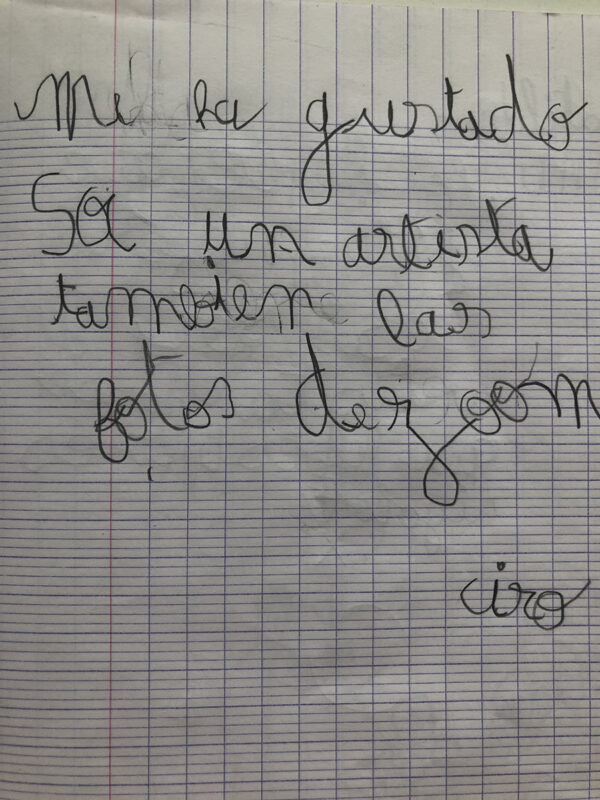 Mi ha gustado
Sa un artista
tambien las
fotos der
ciro